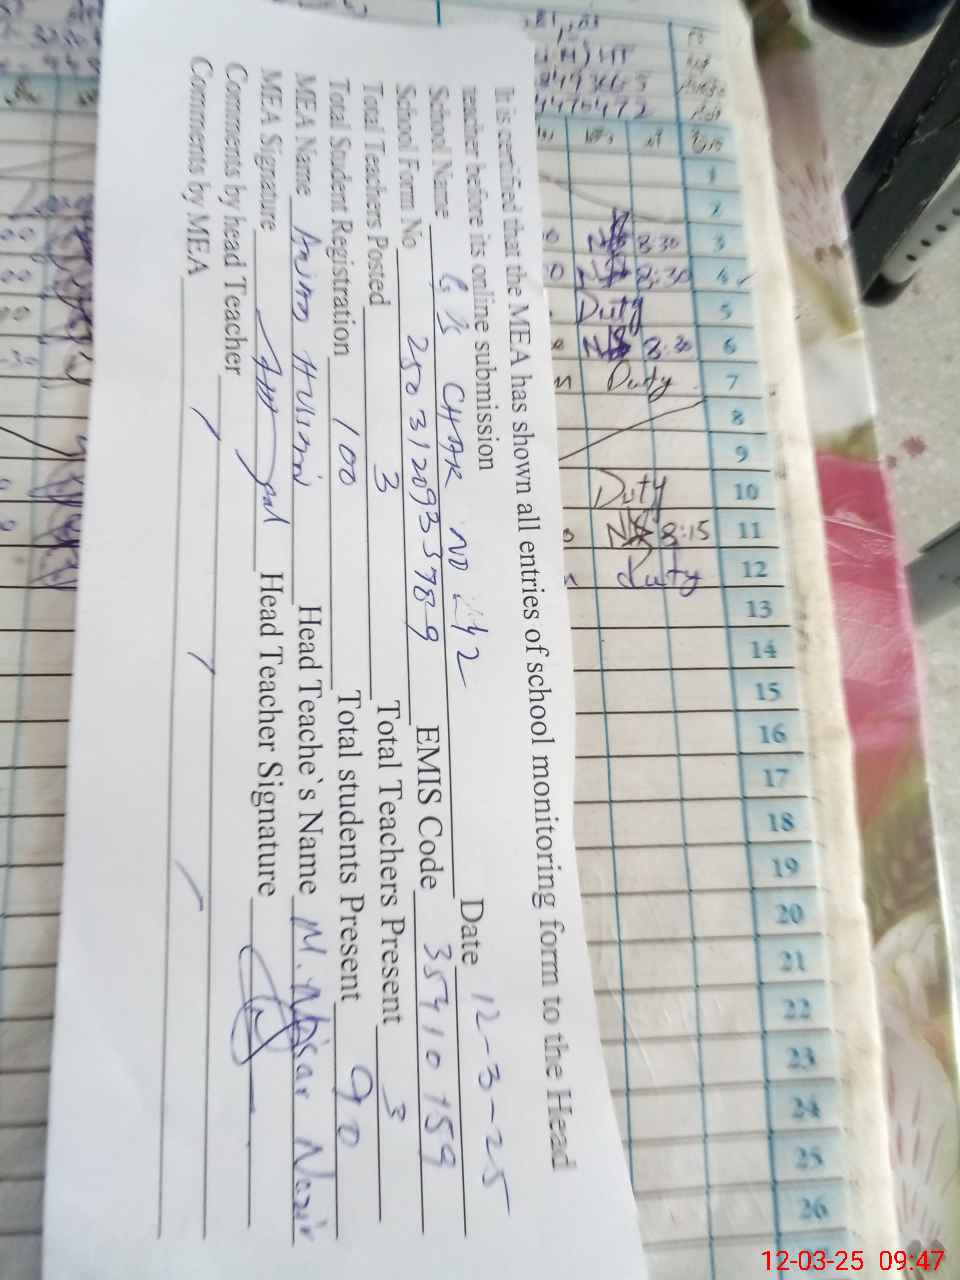 It is certified that the MEA has shown all entries of school monitoring form to the Head
teacher before its online submission
Date 12-3-25
School Name CHAK NO
School Form No 2503120933789 EMIS Code 35410159
Total Teachers Posted 3 Total Teachers Present 3
Total Student Registration 100 Total students Present 90
MEA Name Hussain Head Teache`s Name M. Nisar Nazir
MEA Signature Head Teacher Signature
Comments by head Teacher
Comments by MEA
1
2
3 8:30
4 8:30
5 Duty
6 8:30
7 Duty
8
9
10 Duty
11 8:15
12 duty
13
14
15
16
17
18
19
20
21
22
23
24
25
26
12-03-25 09:47